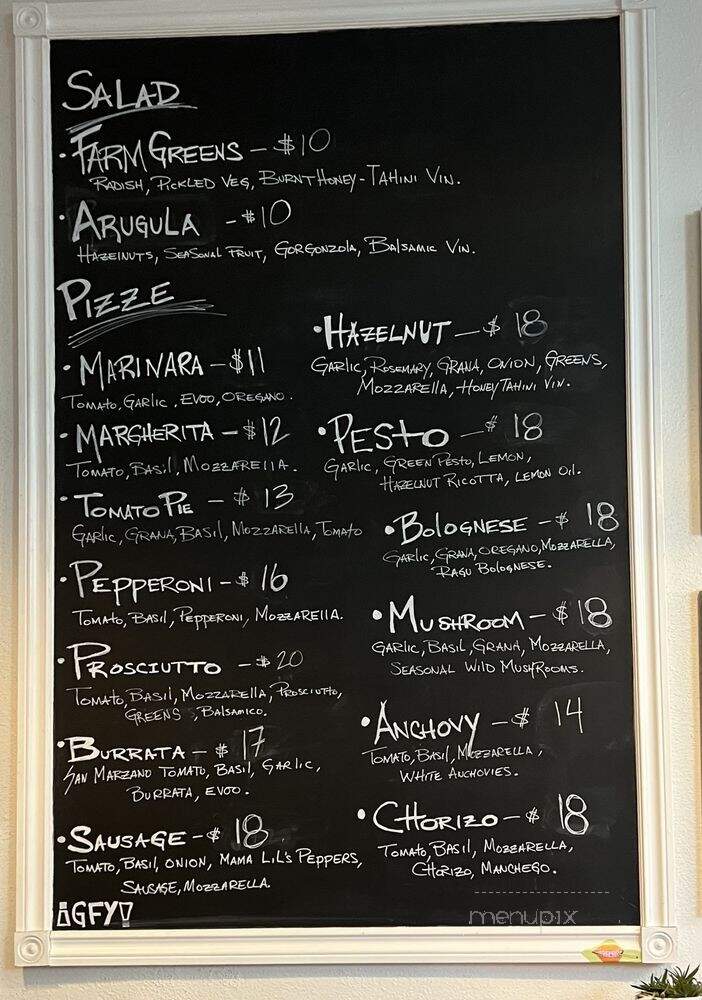 SALAD
• FARM GREENS - $10
RADISH, PICKLED VEG, BURNT HONEY-TAHINI VIN.
• ARUGULA - $10
HAZELNUTS, SEASONAL FRUIT, GORGONZOLA, BALSAMIC VIN.
PIZZE
• MARINARA - $11
TOMATO, GARLIC, EVOO, OREGANO.
• MARGHERITA - $12
TOMATO, BASIL, MOZZARELLA.
• TOMATO PIE - $13
GARLIC, GRANA, BASIL, MOZZARELLA, TOMATO
• PEPPERONI - $16
TOMATO, BASIL, PEPPERONI, MOZZARELLA.
• PROSCIUTTO - $20
TOMATO, BASIL, MOZZARELLA, PROSCIUTTO,
GREENS, BALSAMICO.
• BURRATA - $17
SAN MARZANO TOMATO, BASIL, GARLIC,
BURRATA, EVOO.
• SAUSAGE - $18
TOMATO, BASIL, ONION, MAMA LIL'S PEPPERS,
SAUSAGE, MOZZARELLA.
¡GFY!
• HAZELNUT - $18
GARLIC, ROSEMARY, GRANA, ONION, GREENS,
MOZZARELLA, HONEY TAHINI VIN.
• PESTO - $18
GARLIC, GREEN PESTO, LEMON,
HAZELNUT RICOTTA, LEMON OIL.
• BOLOGNESE - $18
GARLIC, GRANA, OREGANO, MOZZARELLA,
RAGU BOLOGNESE.
• MUSHROOM - $18
GARLIC, BASIL, GRANA, MOZZARELLA,
SEASONAL WILD MUSHROOMS.
• ANCHOVY - $14
TOMATO, BASIL, MOZZARELLA,
WHITE ANCHOVIES.
• CHORIZO - $18
TOMATO, BASIL, MOZZARELLA,
CHORIZO, MANCHEGO.
menupix